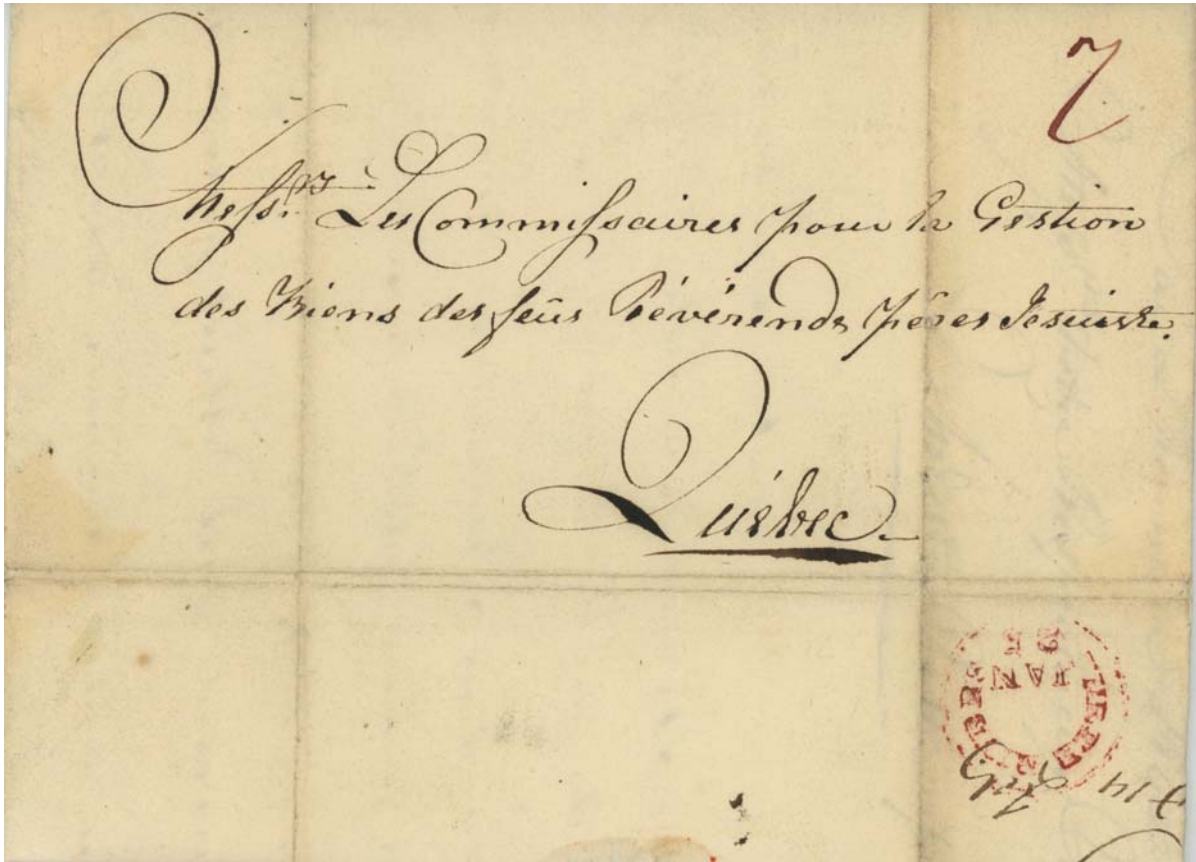 7
Mess.rs Les Commissaires pour la Gestion
des Biens des feûs Révérends pêres Jesuistes.
Québec
THREE RIVERS
JAN